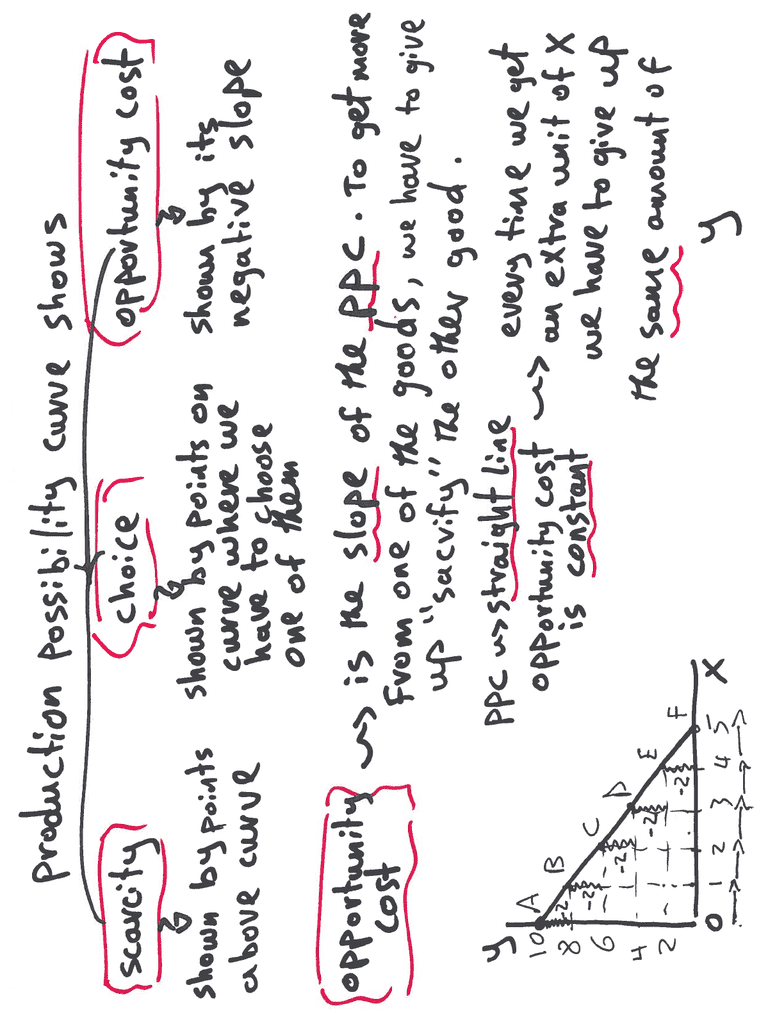 production possibility curve shows
scarcity choice opportunity cost
shown by points
above curve
shown by points on
curve where we
have to choose
one of them
shown by its
negative slope
opportunity
cost
is the slope of the PPC. To get more
from one of the goods, we have to give
up "sacrify" the other good.
PPC straight line
opportunity cost
is constant
every time we get
an extra unit of X
we have to give up
the same amount of
y
y
10 A
8 B
6 C
4 D
2 E
F
-2 -2 -2 -2 -2
0 1 2 3 4 5
X